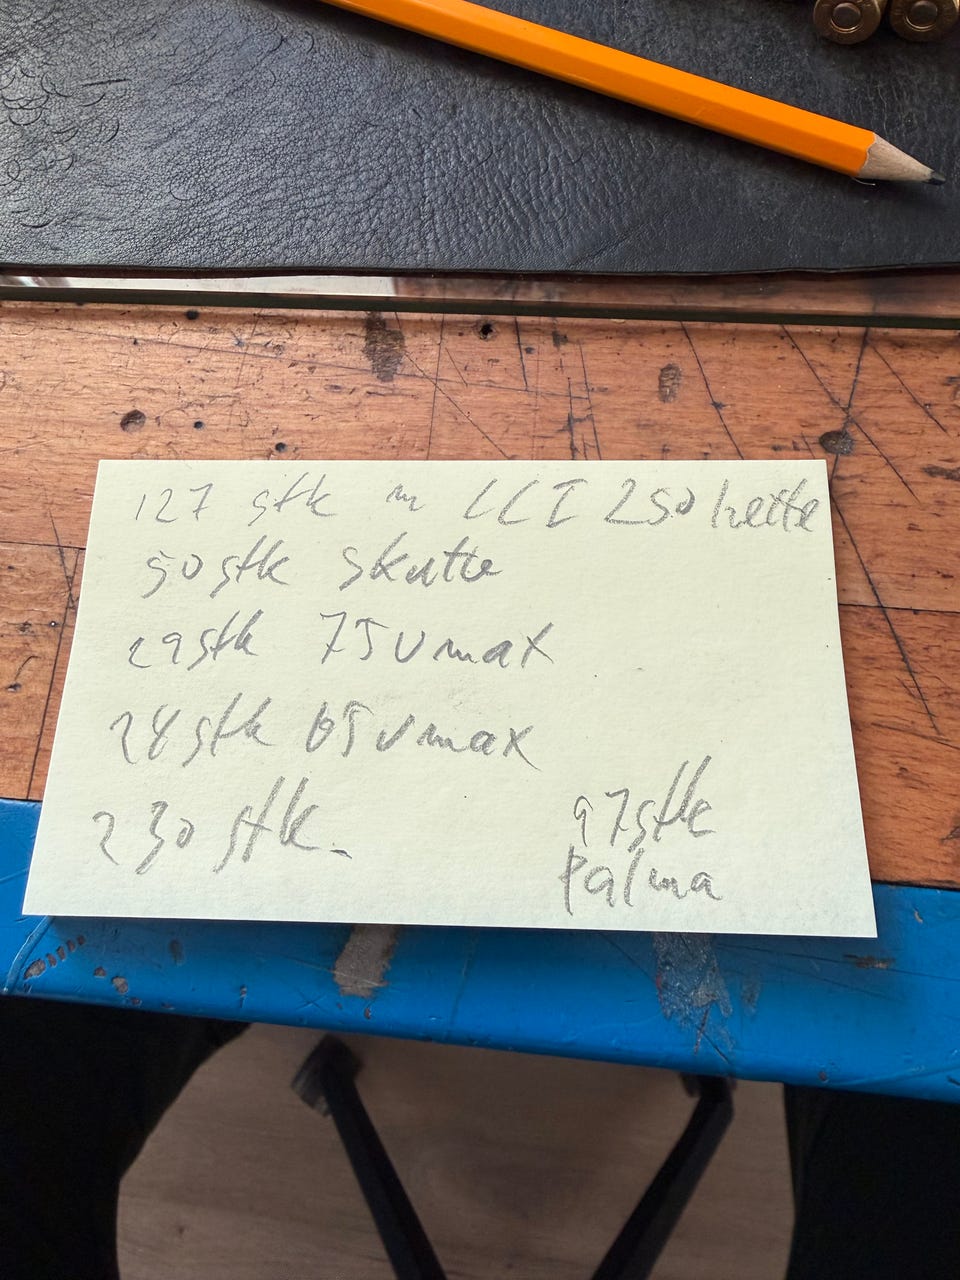 127 stk m CCI 250 hette
50 stk skutte
29 stk 75 vmax
24 stk 65 vmax
230 stk.
97 stk
Palma